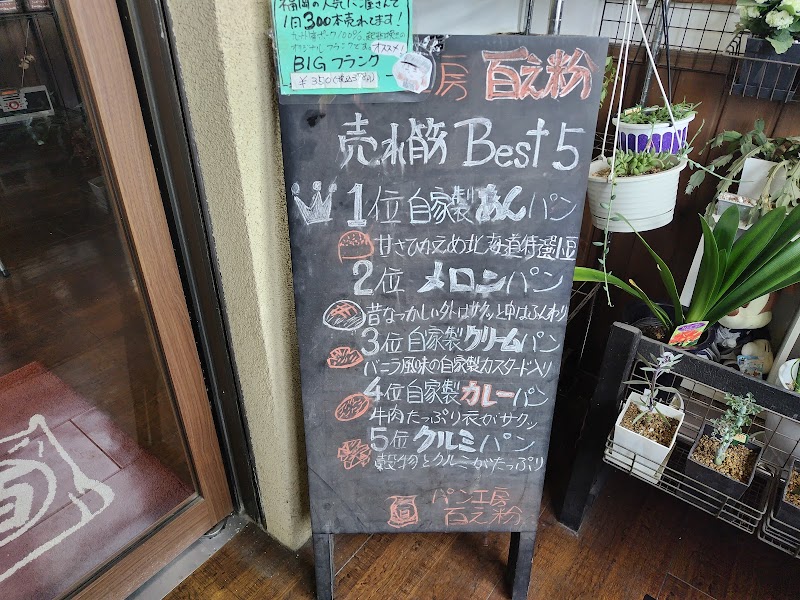 福岡の人気パン屋さんで
1日300本売れてます!
オススメ!
BIGフランク
¥350
工房 百之粉
売れ筋 Best 5
1位 自家製あんパン
甘さひかえめ北海道特選小豆
2位 メロンパン
昔なつかしい外はサクッと中はふんわり
3位 自家製クリームパン
バニラ風味の自家製カスタード入り
4位 自家製カレーパン
牛肉たっぷり衣がサクッ
5位 クルミパン
穀物とクルミがたっぷり
パン工房
百之粉
百